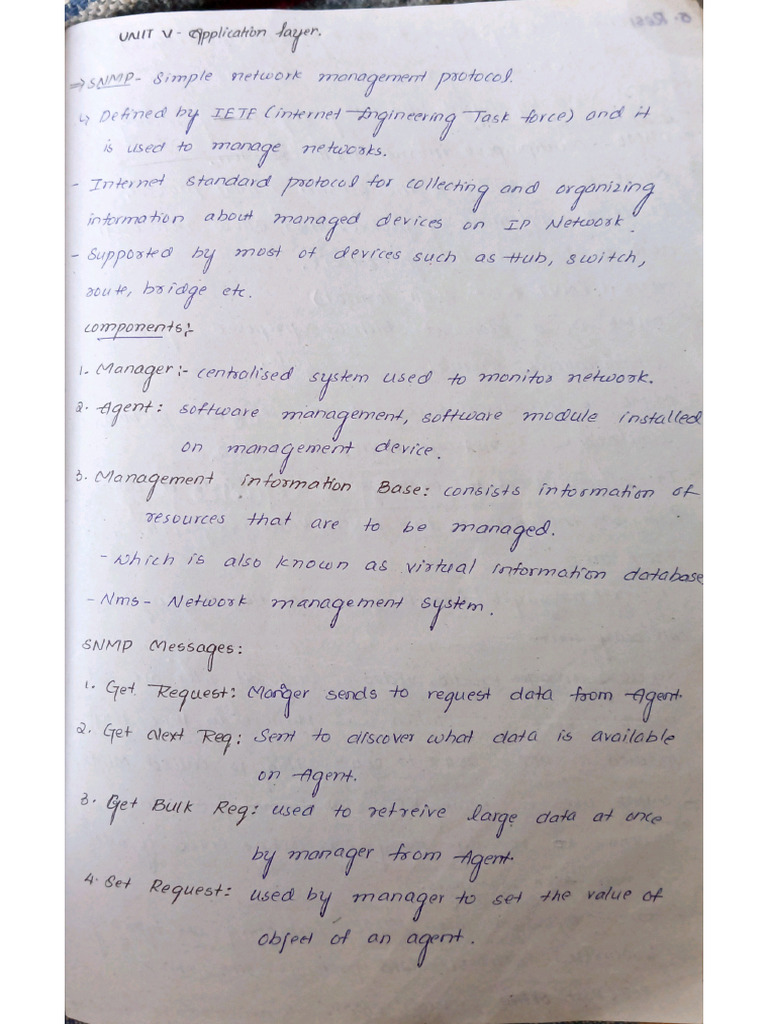 UNIT V - Application layer.
⇒ SNMP - Simple network management protocol.
↳ Defined by IETF (internet Engineering Task force) and it
is used to manage networks.
- Internet standard protocol for collecting and organizing
information about managed devices on IP Network.
- Supported by most of devices such as Hub, switch,
route, bridge etc.
components:-
1. Manager:- centralised system used to monitor network.
2. Agent: software management, software module installed
on management device.
3. Management information Base: consists information of
resources that are to be managed.
- which is also known as virtual information database
- Nms - Network management system.
SNMP Messages:
1. Get Request: Manger sends to request data from Agent.
2. Get Next Req: Sent to discover what data is available
on Agent.
3. Get Bulk Req: used to retreive large data at once
by manager from Agent.
4. Set Request: used by manager to set the value of
object of an agent.